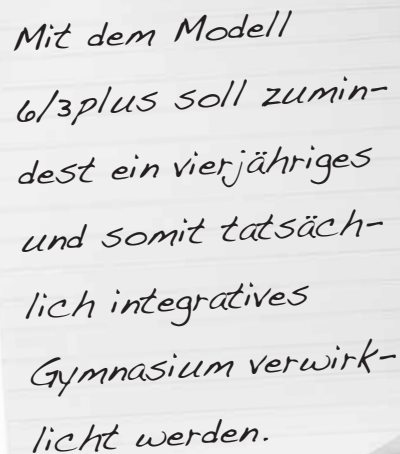 Mit dem Modell
6/3plus soll zumin-
dest ein vierjähriges
und somit tatsäch-
lich integratives
Gymnasium verwirk-
licht werden.